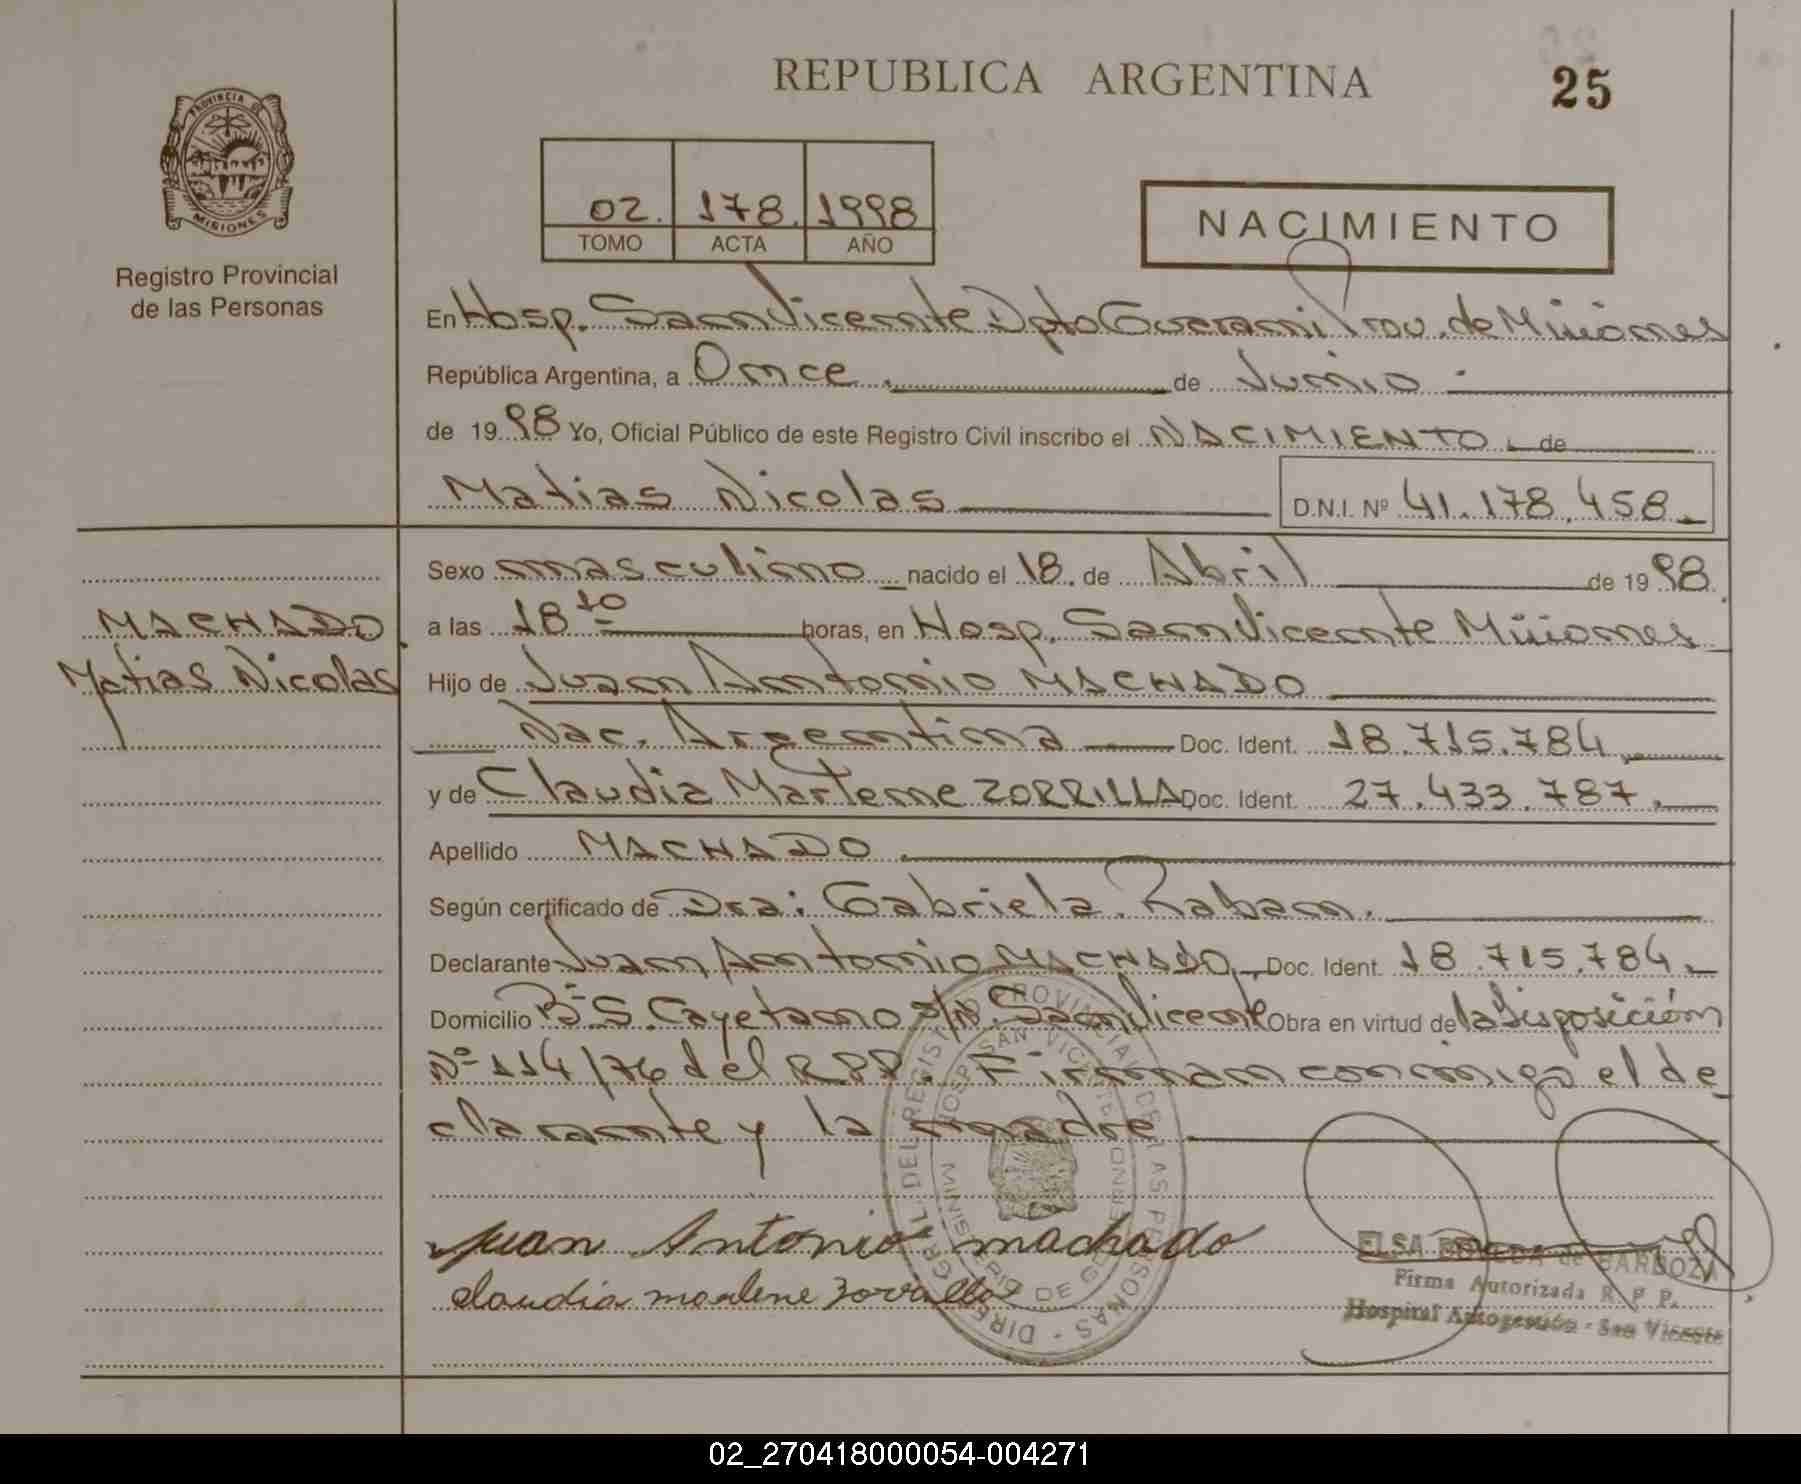 REPUBLICA ARGENTINA
25
PROVINCIA DE
MISIONES
Registro Provincial
de las Personas
02. 178. 1998
TOMO ACTA AÑO
NACIMIENTO
En Hosp. San Vicente Dpto Guarani Prov. de Misiones
República Argentina, a Once de Junio
de 1998 Yo, Oficial Público de este Registro Civil inscribo el NACIMIENTO de
Matias Nicolas D.N.I. Nº 41.178.458
Sexo masculino nacido el 18. de Abril de 1998
MACHADO
Matias Nicolas
a las 18 10 horas, en Hosp. San Vicente Misiones
Hijo de Juan Antonio MACHADO
Nac. Argentina Doc. Ident. 18.715.784
y de Claudia Marlene ZORRILLA Doc. Ident. 27.433.787.
Apellido MACHADO
Según certificado de Dra: Gabriela Raban.
Declarante Juan Antonio MACHADO Doc. Ident. 18.715.784
Domicilio Bº S. Cayetano s/Nº San Vicente Obra en virtud de la Disposición
Nº 114/76 del R.P.P. Firman conmigo el de
clarante y la madre
Juan Antonio machado
claudia marlene zorrilla
DIRECCION GRAL. DEL REGISTRO PROVINCIAL DE LAS PERSONAS
HOSP. SAN VICENTE
MINISTERIO DE GOBIERNO
ELSA de BARBOZA
Firma Autorizada R. P. P.
Hospital Autogestión - San Vicente
02_270418000054-004271